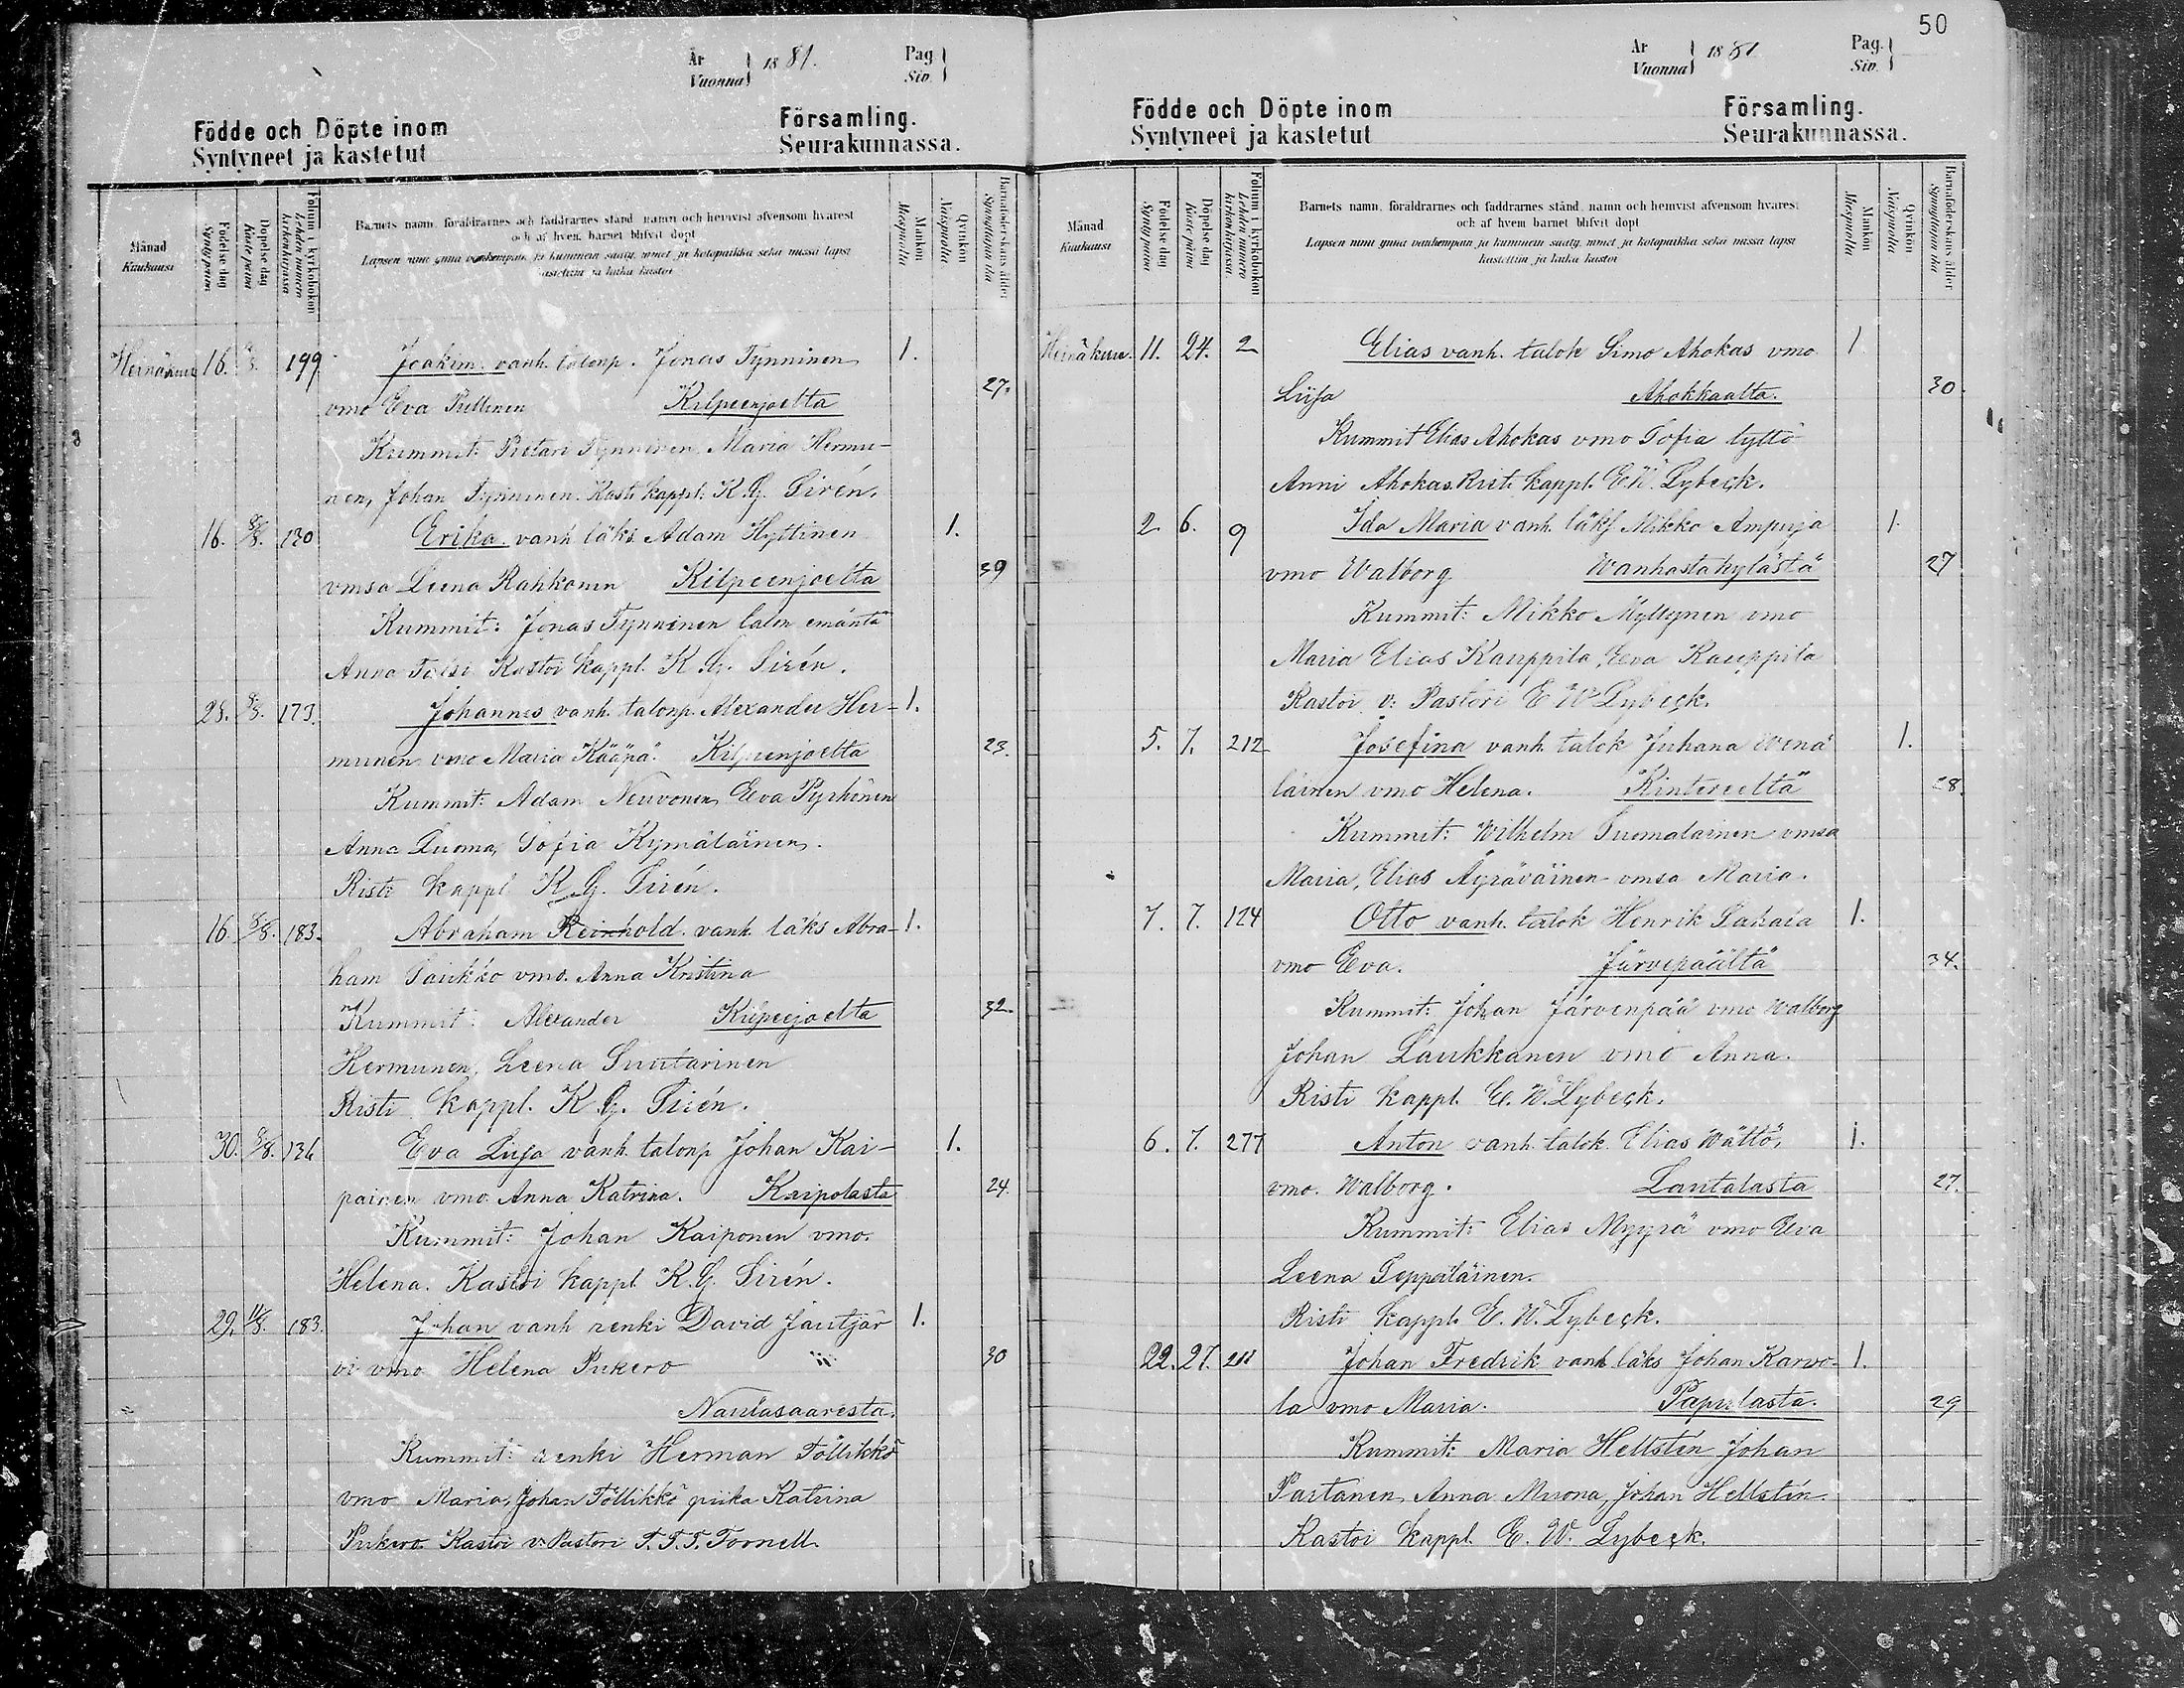 50
År Vuonna } 1881. Pag Siv. }
Födde och Döpte inom Församling.
Syntyneet ja kastetut Seurakunnassa.
Månad Kuukausi
Födelse dag Syntypäivä
Döpelse dag Kaste päivä
Folium i kyrkoboken Lehden numero kirkonkirjassa
Barnets namn, föräldrarnes och faddrarnes stånd namn och hemvist äfvensom hvarest
och af hvem barnet blifvit döpt
Lapsen nimi ynnä vanhempain ja kummein sääty, nimet ja kotopaikka sekä missä lapsi
kastettiin ja kuka kastoi
Mankön Miespuolia
Qvinkön Naispuolia
Barnaföderskans ålder Synnyttäjän ikä
Heinäkuu 16. 199 Joakim vanh. talonp. Jonas Tynninen 1.
vmo Eva Pullinen Kilpeenjoelta 27.
Kummit: Pietari Tynninen, Maria Hermu-
nen, Johan Tynninen. Kasti kappl. K. G. Sirén.
16. 8/8. 130 Erika vanh. läks. Adam Hyttinen 1.
vmsa Leena Rahkonen Kilpeenjoelta 39
Kummit: Jonas Tynninen talon emäntä
Anna Kastoi kappl. K. G. Sirén.
28. 8/8. 173. Johannes vanh. talonp. Alexander Her- 1.
munen vmo Maria Kääpä. Kilpeenjoelta 23.
Kummit: Adam Neuvonen, Eva Pyrhönen
Anna Luoma, Sofia Kymäläinen.
Risti kappl K. G. Sirén.
16 8/8. 183. Abraham Reinhold vanh. läks Abra- 1.
ham Saukko vmo. Anna Kristina
Kummit: Alexander Kilpeejoelta 32.
Hermunen, Leena Suutarinen
Risti kappl. K. G. Sirén.
30. 8/8. 136 Eva Liisa vanh. talonp Johan Kai- 1.
painen vmo. Anna Katrina. Kaipolasta 24.
Kummit: Johan Kaiponen vmo.
Helena. Kastoi kappl K. G. Sirén.
29. 11/8. 183. Johan vanh renki David Jäntjär 1.
vi vmo Helena Pukero 30
Nautasaaresta.
Kummit: renki Herman Töllikkö
vmo Maria, Johan Töllikkö piika Katrina
Pukero. Kastoi v. Pastori T. T. T. Fornell.
År Vuonna } 1881 Pag. Siv. }
Födde och Döpte inom Församling.
Syntyneet ja kastetut Seurakunnassa.
Månad Kuukausi
Födelse dag Syntypäivä
Döpelse dag Kaste päivä
Folium i kyrkoboken Lehden numero kirkonkirjassa.
Barnets namn, föräldrarnes och faddrarnes stånd, namn och hemvist äfvensom hvarest
och af hvem barnet blifvit döpt
Lapsen nimi ynnä vanhempain ja kummein sääty, nimet ja kotopaikka sekä missä lapsi
kastettiin ja kuka kastoi
Mankön Miespuolia
Qvinkön Naispuolia
Barnaföderskans ålder Synnyttäjän ikä
Heinäkuu. 11. 24. 2 Elias vanh. talok Simo Ahokas vmo 1
Liisa Ahokkaalta. 30.
Kummit Elias Ahokas vmo Sofia tyttö
Anni Ahokas. Risti kappl. E. W. Lybeck.
2 6. 9 Ida Maria vanh. läks Mikko Ampuja 1.
vmo Walborg Wanhastakylästä 27
Kummit: Mikko Myllynen vmo
Maria Elias Kauppila, Eva Kauppila
Kastoi v: Pastori E W Lybeck.
5. 7. 212 Josefina vanh. talok Juhana Wenä 1.
läinen vmo Helena. Kintereeltä 28.
Kummit: Wilhelm Suomalainen vmsa
Maria, Elias Äyräväinen vmsa Maria.
7. 7. 124 Otto vanh. talok Henrik Sahala 1.
vmo Eva. Järvepäältä 34.
Kummit: Johan Järvenpää vmo Walborg
Johan Laukkanen vmo Anna.
Risti kappl. E. W. Lybeck.
6. 7. 277 Anton vanh. talok. Elias Wättö, 1.
vmo. Walborg. Lautalasta 27.
Kummit: Elias Myyrä vmo Eva
Leena Seppäläinen.
Risti kappl. E. W. Lybeck.
22. 27. 211 Johan Fredrik vanh läks Johan Karvo- 1.
la vmo Maria. Papulasta. 29
Kummit: Maria Hellstén, Johan
Partanen, Anna Murona, Johan Hellstén.
Kastoi kappl. E. W. Lybeck.